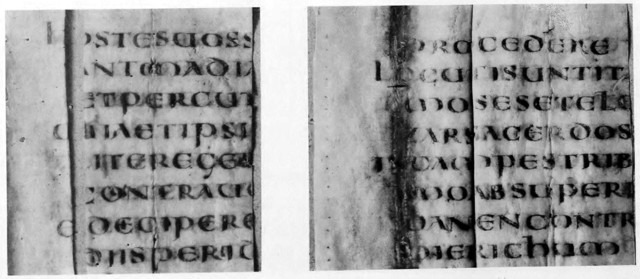 OSTESUOSS
ANTMADIA
ETPERCUT
UIAETIPSI
LITEREGER
CONTRAUO
EDECIPERE
DIISPERID
PROCEDERE
LOCUTISUNTIT
MOSESETELE
ZARSACERDOS
INCAMPESTRIB
MOABSUPERI
DANENCONTR
HIERICHUM